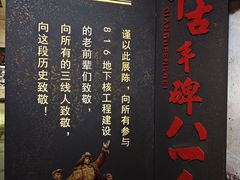 谨以此展陈，向所有参与
816地下核工程建设
的老前辈们致敬，
向所有的三线人致敬，
向这段历史致敬！
丰碑八一